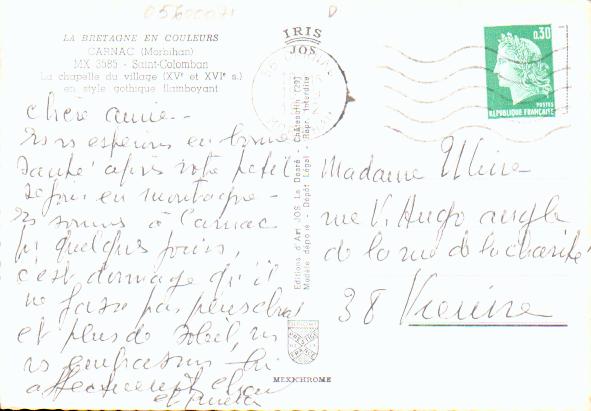 05600071
D
LA BRETAGNE EN COULEURS
CARNAC (Morbihan)
MX 3585 - Saint-Colomban
La chapelle du village (XVe et XVIe s.)
en style gothique flamboyant
IRIS
JOS
0,30
POSTES
REPUBLIQUE FRANÇAISE
Chère amie -
Ns vs espérons en bonne
santé après votre petit
séjour en montagne -
Ns sommes à Carnac
pr quelques jours,
c'est dommage qu'il
ne fasse pas plus chaud
et plus de soleil, ns
vs embrassons
affectueusement
Editions d'Art JOS Le Doaré - Châteaulin (29)
Modèle déposé - Dépôt Légal - Repr. Interdite
Madame
rue V. Hugo angle
de la rue de la charité
38 Vienne
MEXICHROME